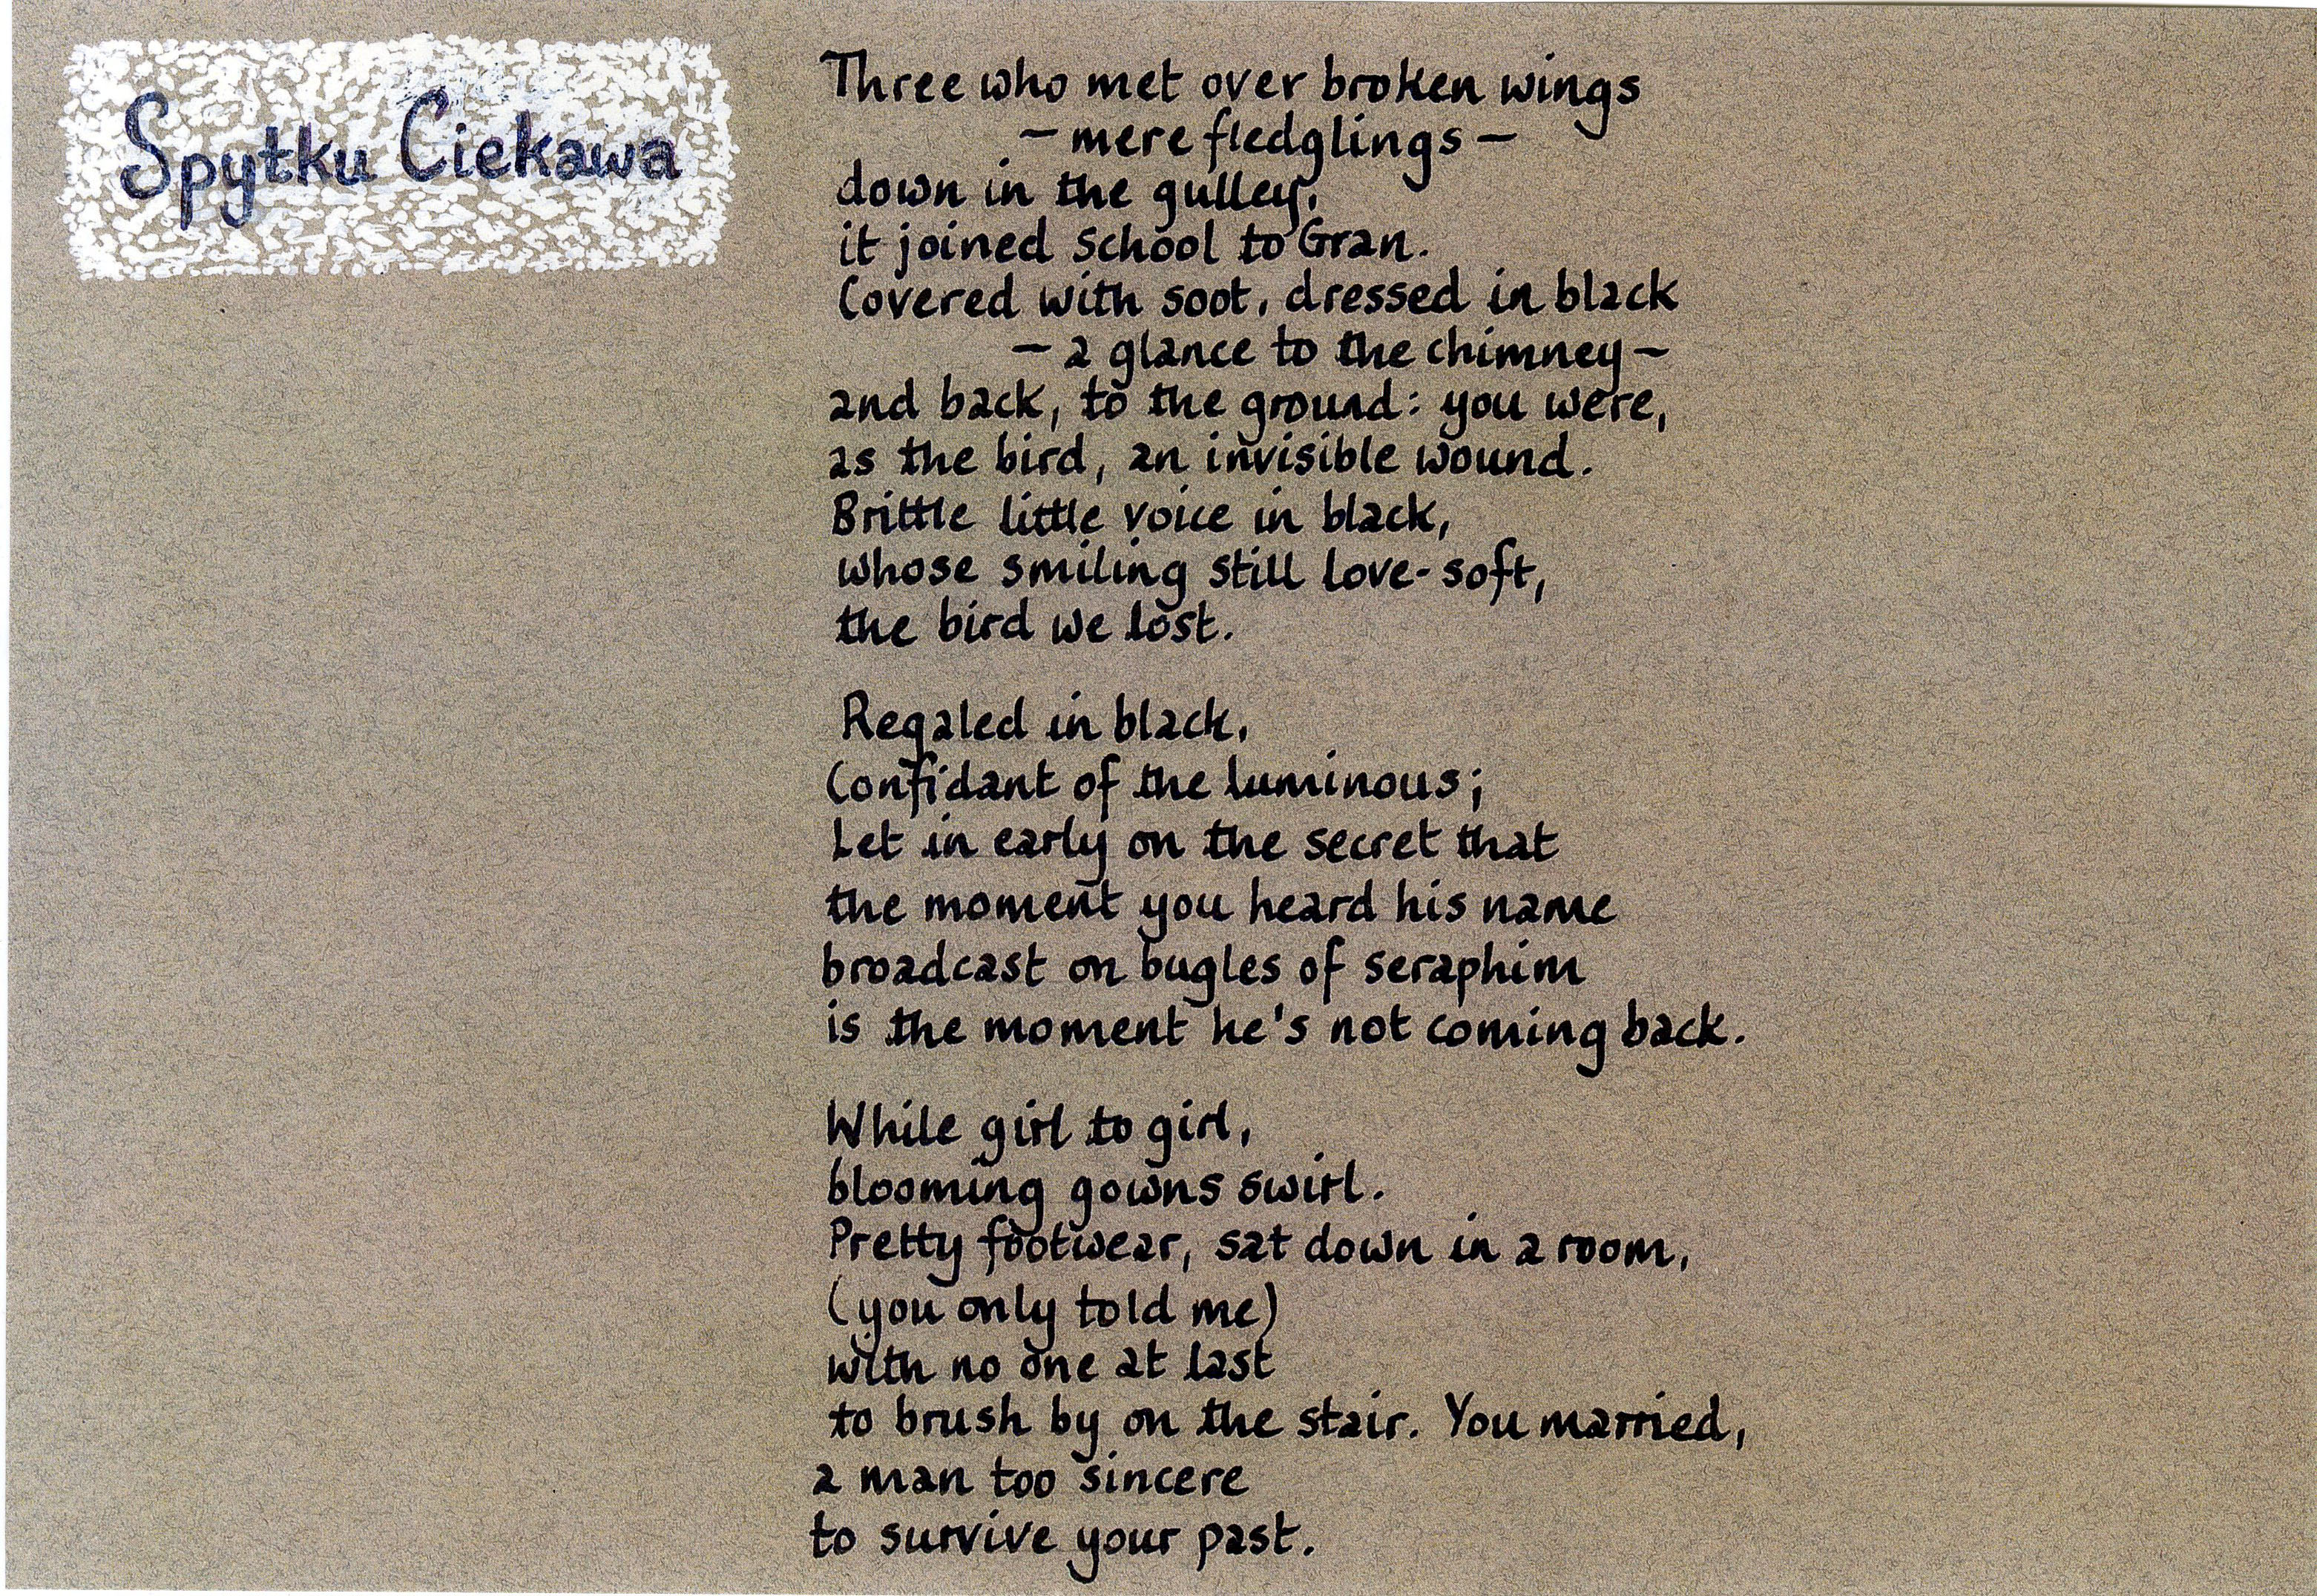 Spytku Ciekawa
Three who met over broken wings
– mere fledglings –
down in the gulley,
it joined school to Gran.
Covered with soot, dressed in black
– a glance to the chimney –
and back, to the ground: you were,
as the bird, an invisible wound.
Brittle little voice in black,
whose smiling still love-soft,
the bird we lost.
Regaled in black,
Confidant of the luminous;
Let in early on the secret that
the moment you heard his name
broadcast on bugles of seraphim
is the moment he's not coming back.
While girl to girl,
blooming gowns swirl.
Pretty footwear, sat down in a room,
(you only told me)
with no one at last
to brush by on the stair. You married,
a man too sincere
to survive your past.